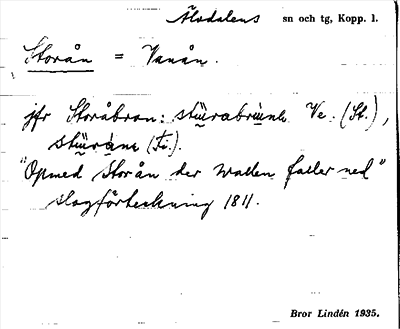 Älvdalens sn och tg, Kopp. l.
Storån = Vanån.
jfr Storåbron: stu̲rabru̲nẹ Ve. (St.),
(Ti.).
"Opmed Storån der wallen faller ned"
slagförteckning 1811.
Bror Lindén 1935.